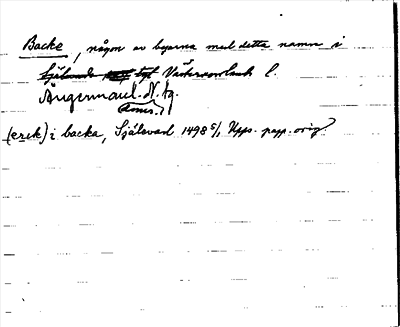 Backe, någon av byarna med detta namn i
Själevads tgt Västernorrlands l.
Ångermanl. N. tg.
(erek) i backa, Själevad 1498 5/1 Upps. papp. orig.